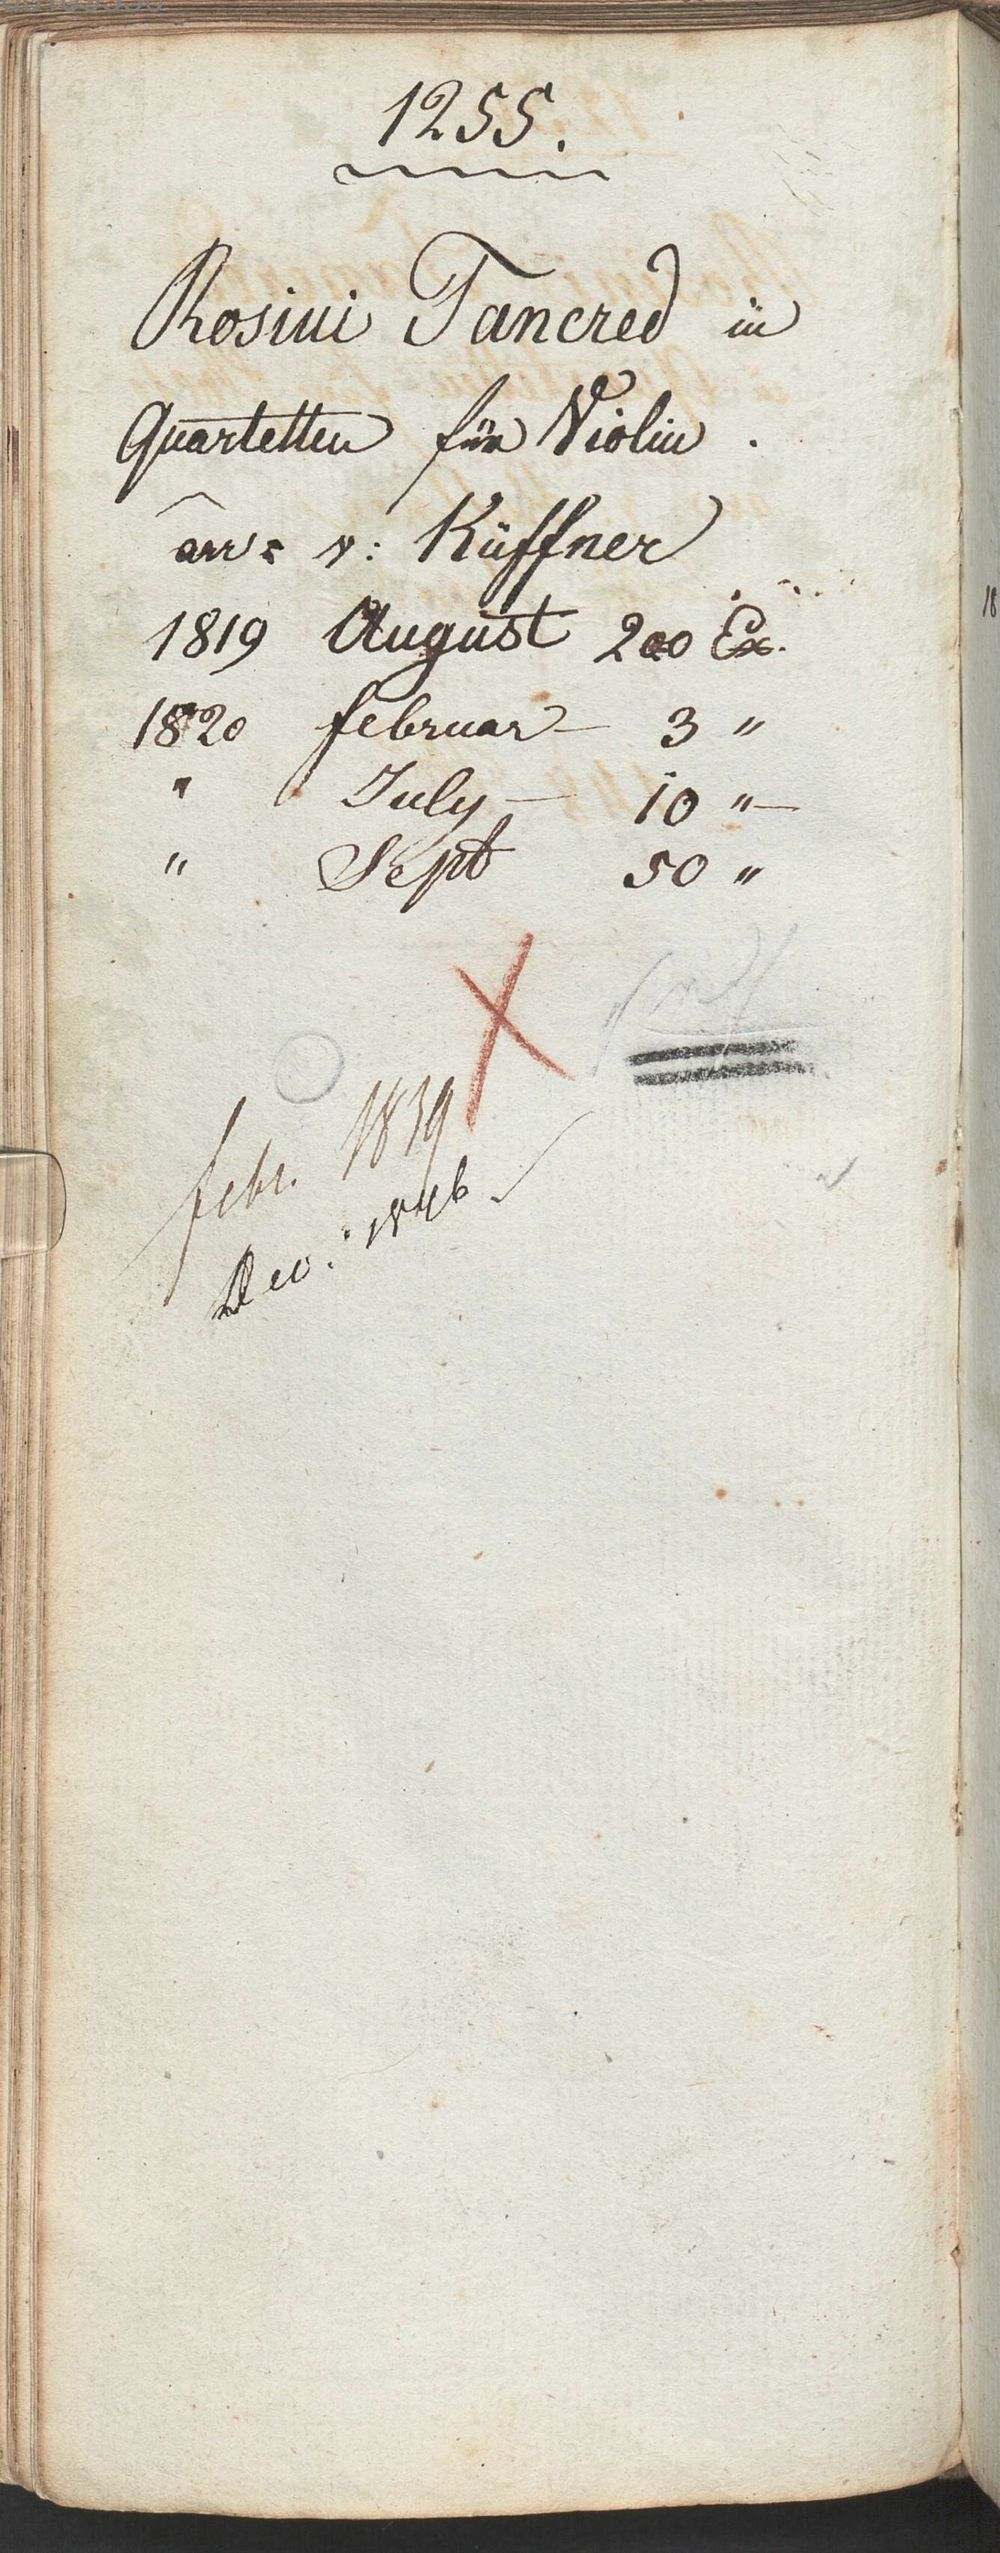 1255.
Rosini Tancred in
Quartetten für Violin.
arr: v: Küffner
1819 August 200 Ex.
1820 februar - 3 "
" July - 10 " -
" Sept 50 "
febr. 1839
Dec. 1846
18